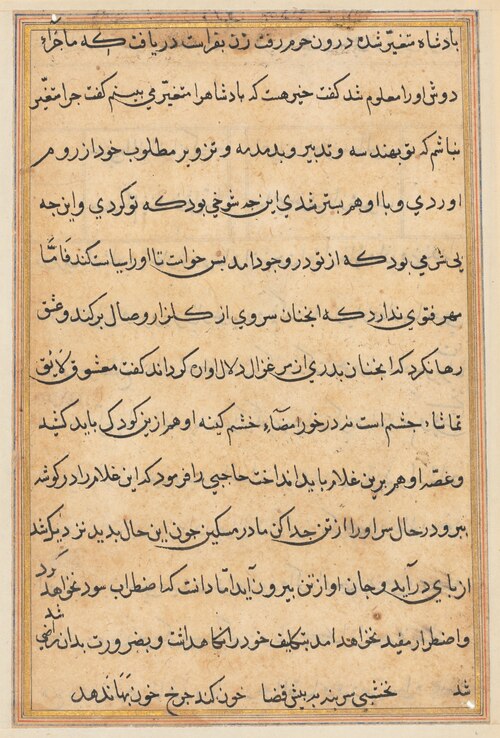 بادشاه متغیّر شده درون حرم رفت زن بفراست دریافت که ماجراء
دوش اورا معلوم شد گفت خیر هست که بادشاهرا متغیّر می بینم گفت چرا متغیّر
نباشم که تو بهندسه و تدبیر و بدمدمه و تزویر مطلوب خود از روم
اوردی و با او هم بستر شدی این چه شوخی بود که تو کردی و این چه
بی بود که از تو در وجود امد بس خواست تا اورا سیاست کند فامّا
مهر فتوی ندارد که انجنان سروی از کلزار وصال برکند و عشق
رها نکرد که انجنان بدری از غزال دلال اواره کرداند کفت معشوق لایق
تماشاء جشم است نه درخور امضاء خشم کینه او هم ازین کودک باید کشید
و غصّه او هم برین غلام باید انداخت حاجبی را فرمود که این غلام را در کوشه
ببر و در حال سر او را از تن جدا کن مادر مسکین جون این حال بدید نزدیک شد
از بای در آید و جان او از تن بیرون آید امّا دانست که اضطراب سود نخواهد کرد
و اضطرار مفید نخواهد امد بتکلیف خود را نکاهداشت و بضرورت بدان راضی شد
شد نخشبی سر بنه بر بیش قضا خون کند جرخ خون بها ندهد